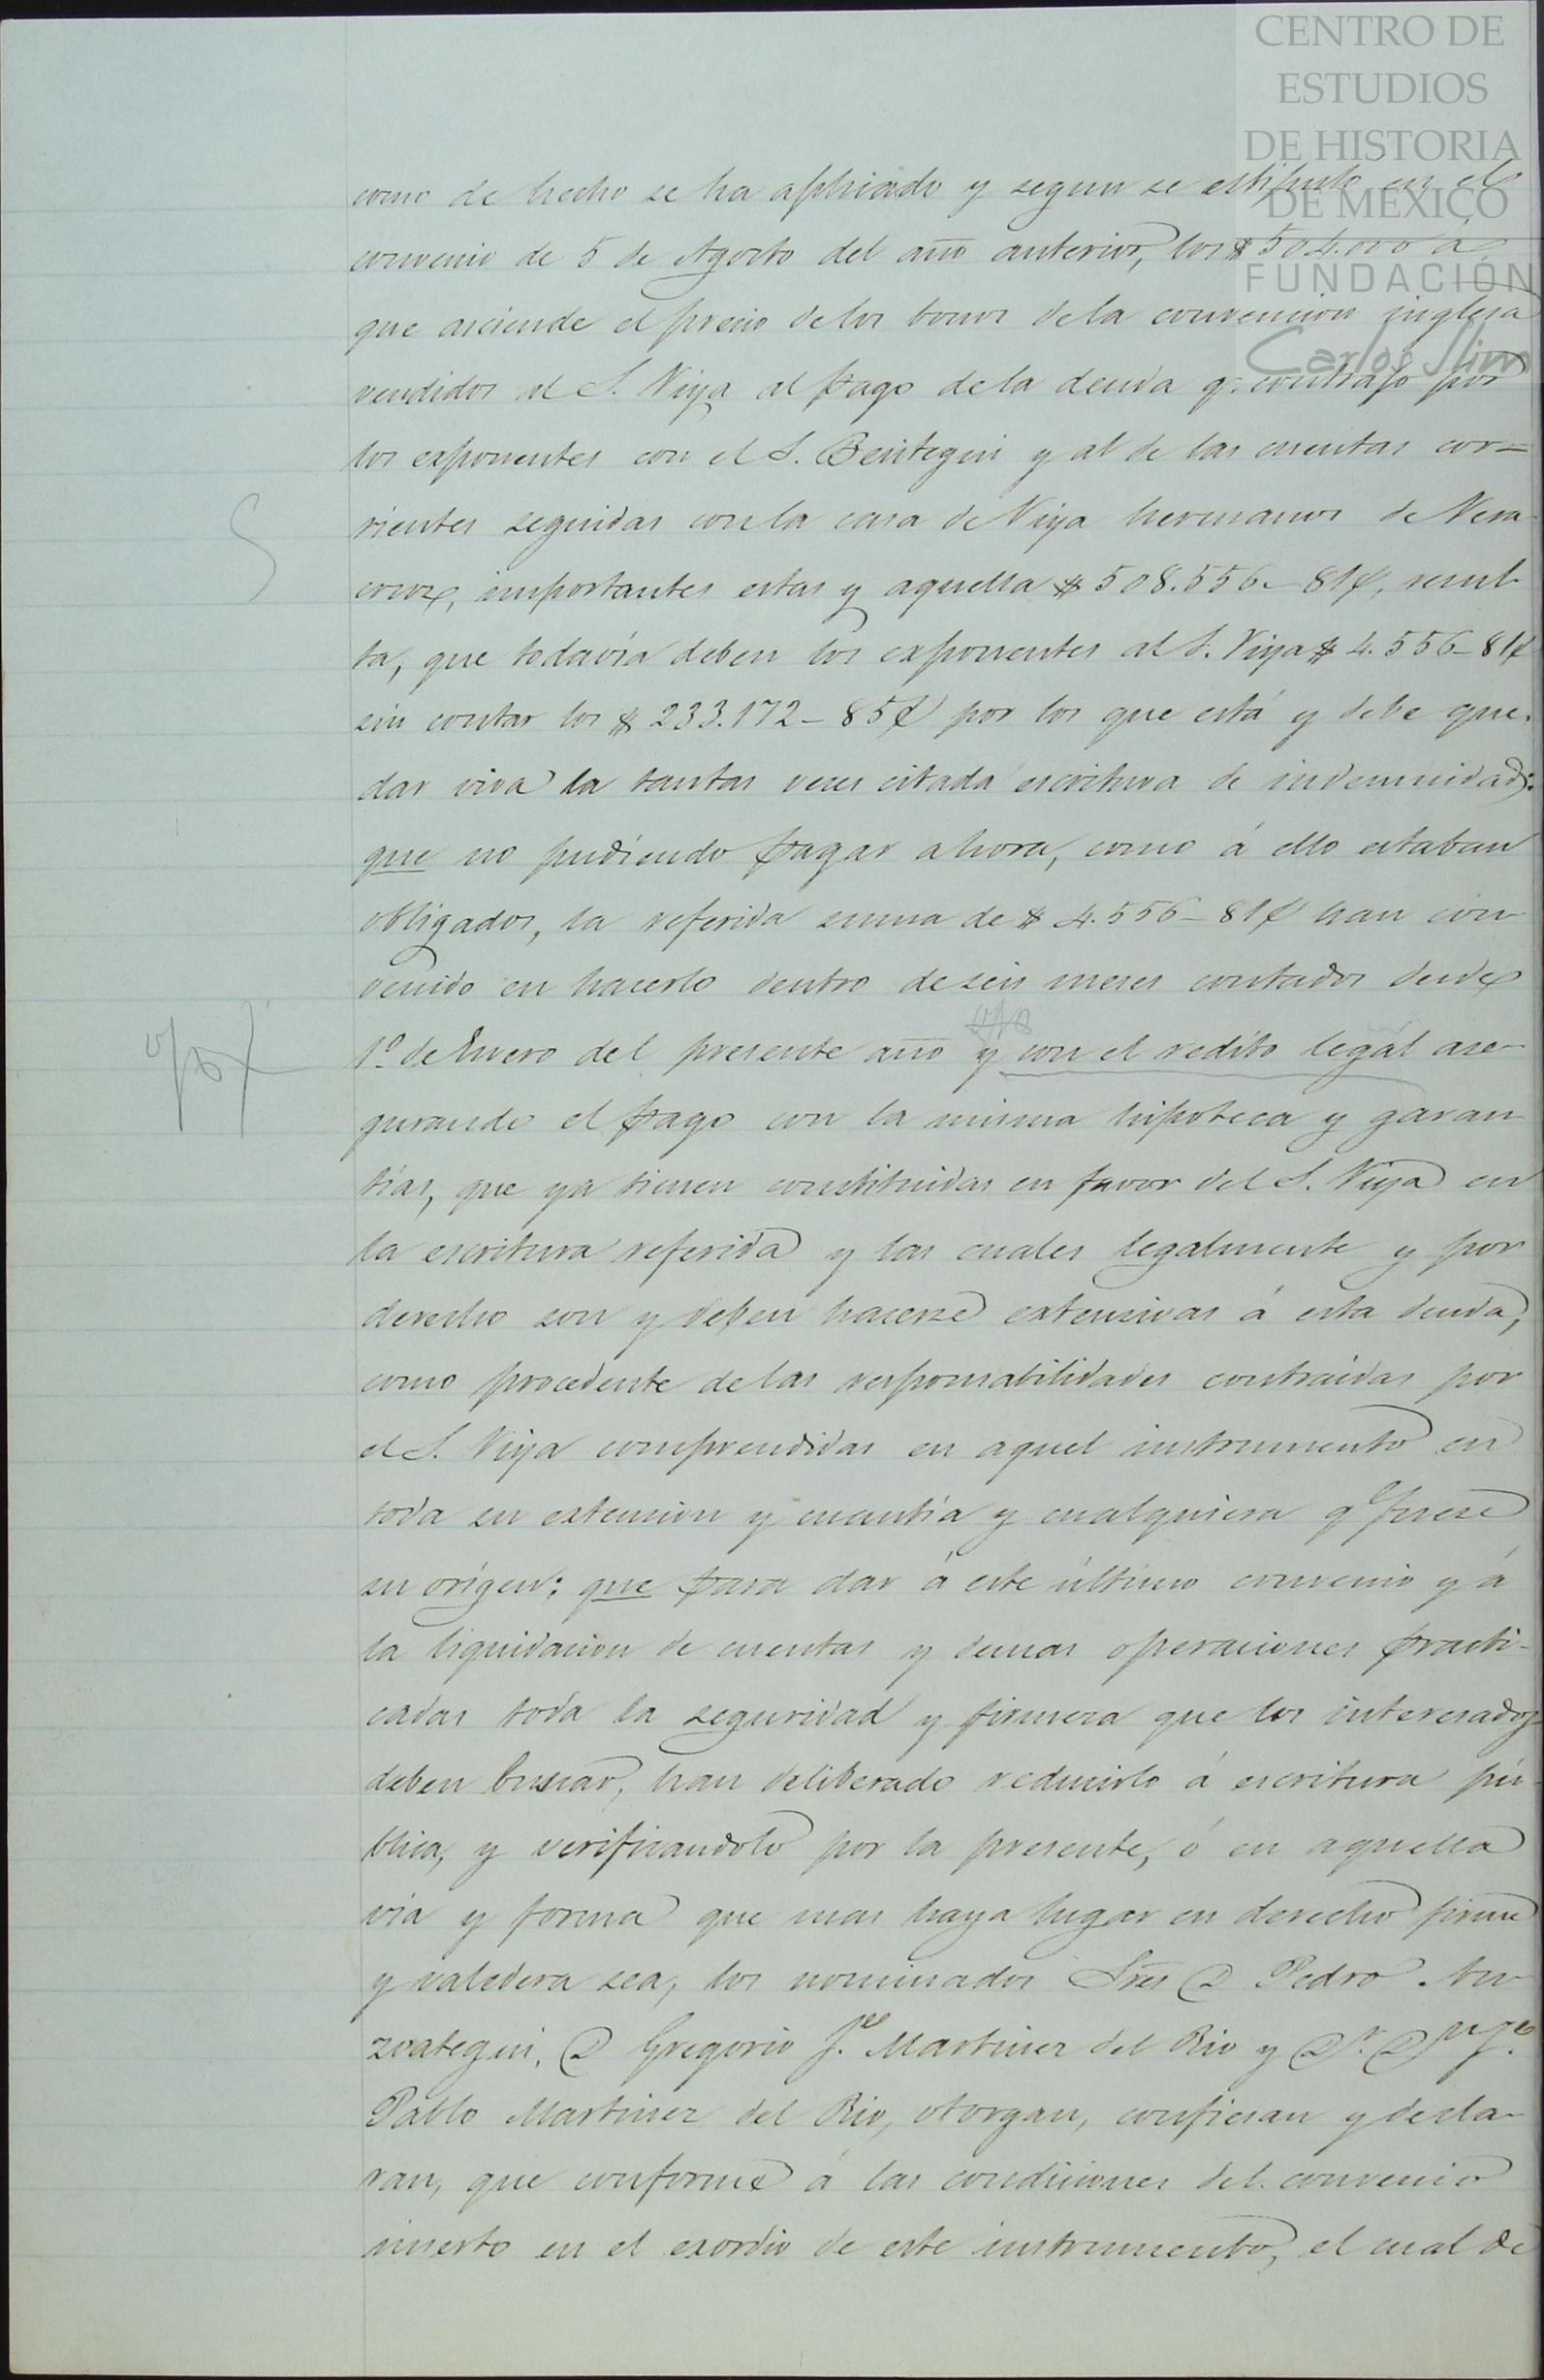 CENTRO DE
ESTUDIOS
DE HISTORIA
DE MÉXICO
FUNDACIÓN
Carlos Slim
como de hecho se ha aplicado y segun se estipuló en el
convenio de 5 de Agosto del año anterior, los $504.000 á
que asciende el precio de los bonos de la convencion inglesa
vendidos al S. Viya al pago de la deuda q. contrajo por
los exponentes con el S. Beistegui y al de las cuentas cor=
rientes seguidas con la casa de Viya hermanos de Vera
cruz, importantes estas y aquella $508.556-81¢, resul-
ta, que todavía deben los exponentes al S. Viya $4.556-81¢
sin contar los $233.172-85¢ por los que está y debe que-
dar viva la tantas veces citada escritura de indemnidad:
que no pudiendo pagar ahora, como á ello estaban
obligados, la referida suma de $4.556-81¢ han con-
venido en hacerlo dentro de seis meses contados desde
1º de Enero del presente año y con el redito legal ase-
gurando el pago con la misma hipoteca y garan
tías, que ya tienen constituidas en favor del S. Viya en
la escritura referida y las cuales legalmente y por
derecho son y deben hacerse extensivas á esta deuda,
como procedente de las responsabilidades contraidas por
el S. Viya comprendidas en aquel instrumento en
toda su extension y cuantía y cualquiera qe. fuese
su orígen; que para dar á este último convenio y á
la liquidacion de cuentas y demas operaciones practi-
cadas toda la seguridad y firmeza que los interesados
deben buscar, han deliberado reducirlo á escritura pú-
blica, y verificandolo por la presente, ó en aquella
vía y forma que mas haya lugar en derecho firme
y valedera sea, los nominados Sres D Pedro An
zoategui, D Gregorio Je. Martinez del Rio y Dr. Dn Je.
Pablo Martinez del Rio, otorgan, confiesan y decla-
ran, que conforme á las condiciones del convenio
inserto en el exordio de este instrumento, el cual de